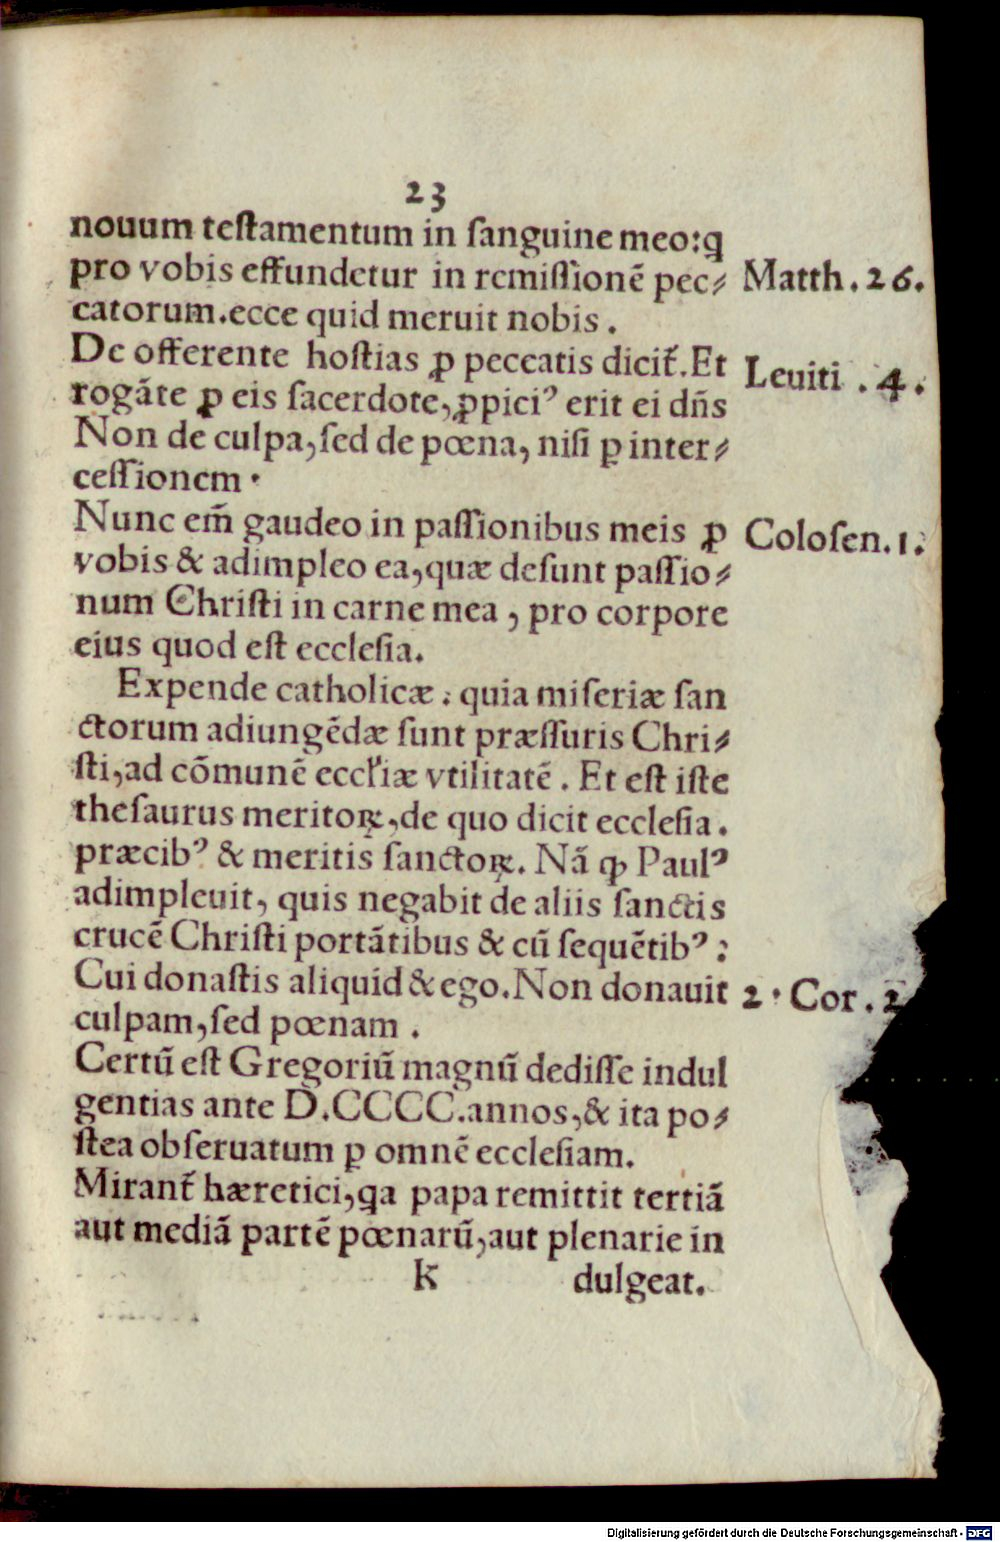 23
nouum teſtamentum in ſanguine meo:ꝗ
pro vobis effundetur in remiſſionē pec⸗
Matth. 26.
catorum.ecce quid meruit nobis.
De offerente hoſtias ꝓ peccatis dicit̃. Et
Leuiti. 4.
rogāte ꝓ eis ſacerdote, ꝓpiciꝰ erit ei dn̄s
Non de culpa, ſed de pœna, niſi ꝑ inter⸗
ceſſionem.
Nunc em̄ gaudeo in paſſionibus meis ꝓ
Coloſen. 1.
vobis & adimpleo ea, quæ deſunt paſſio⸗
num Chriſti in carne mea, pro corpore
eius quod eſt eccleſia.
Expende catholicæ: quia miſeriæ ſan
ctorum adiungēdæ ſunt præſſuris Chri⸗
ſti, ad cōmunē eccl'iæ vtilitatē. Et eſt iſte
theſaurus meritoꝝ, de quo dicit eccleſia.
præcibꝰ & meritis ſanctoꝝ. Nā ꝙ Paulꝰ
adimpleuit, quis negabit de aliis ſanctis
crucē Chriſti portātibus & cū ſequētibꝰ:
Cui donaſtis aliquid & ego. Non donauit
2. Cor. 2
culpam, ſed pœnam.
Certū eſt Gregoriū magnū dediſſe indul
gentias ante D.CCCC.annos, & ita po⸗
ſtea obſeruatum ꝑ omnē eccleſiam.
Mirant̃ hæretici, ꝗa papa remittit tertiā
aut mediā partē pœnarū, aut plenarie in
k
dulgeat.
Digitalisierung gefördert durch die Deutsche Forschungsgemeinschaft - DFG